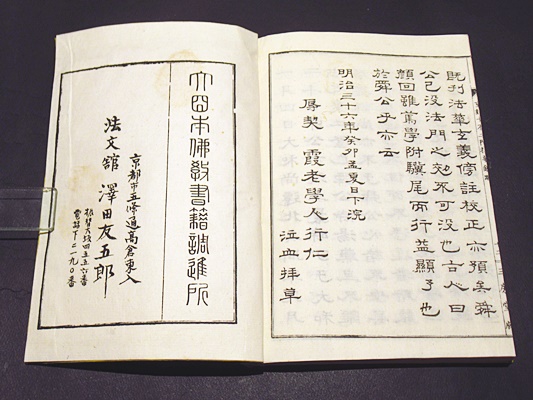 既刊法華玄義傍註校正亦預美舜
公已没法門之効不可没也古心曰
顔回雖篤學附驥尾而行益顯予也
於舜公乎亦云
明治三十六年癸卯孟日下浣
辱契 霞老學人行仁 泣血拜草
大日本佛教書籍調進所
京都市五條通高倉東入
法文館 澤田友五郎
振替大坂四五五六番
電話下二一九〇番